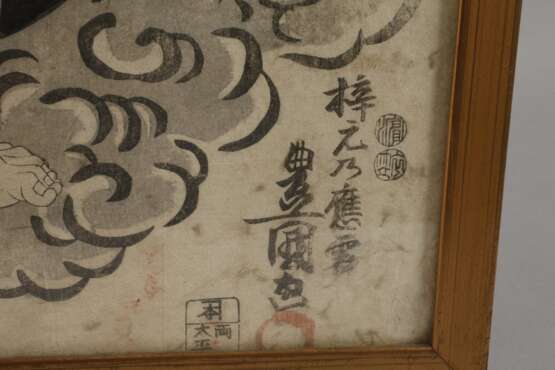 梓元乃應需
豊國画
本
両
大平